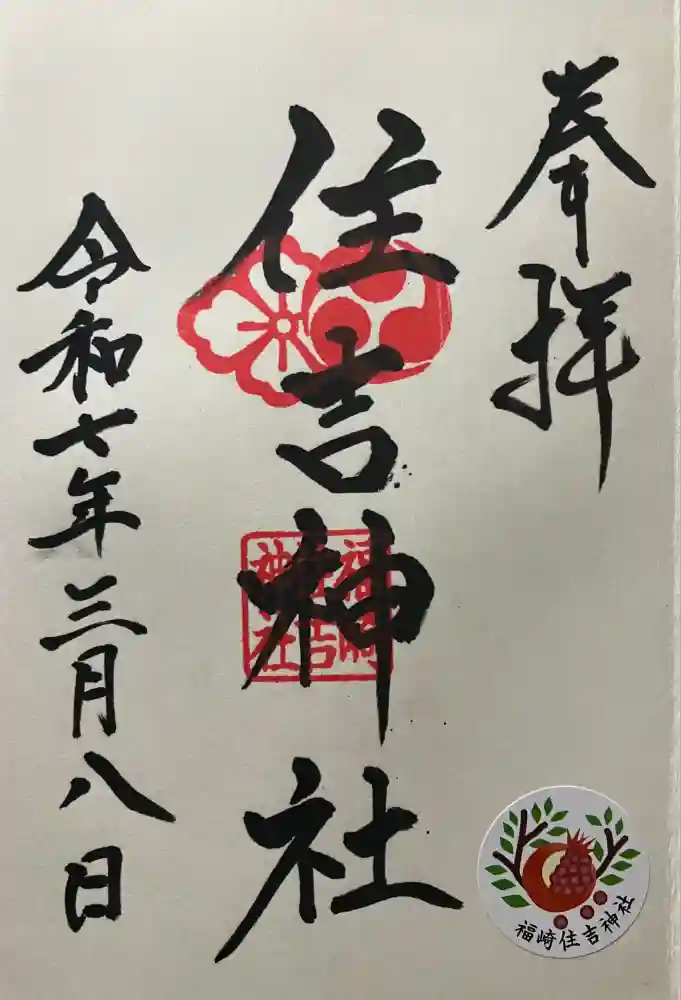 奉拝
住吉神社
福崎
住吉
神社
令和七年三月八日
福崎住吉神社